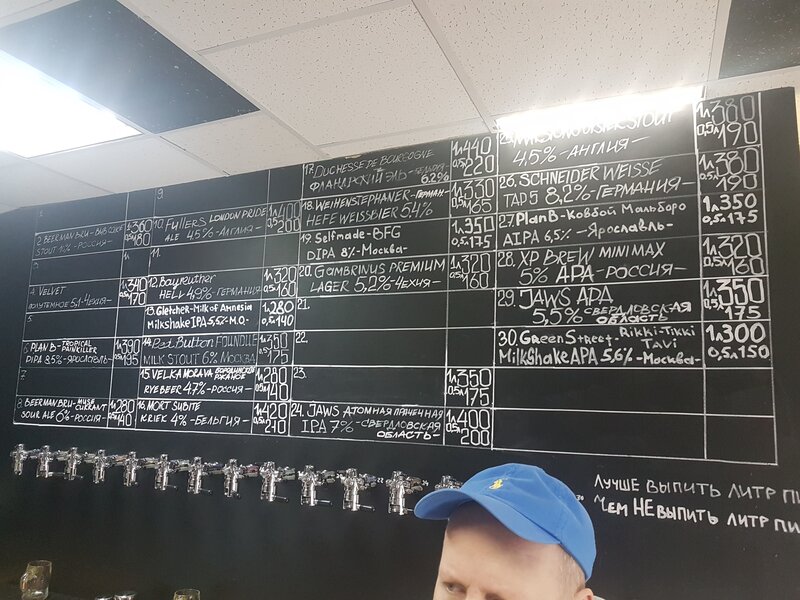 1.
2. BEERMAN BRU-
STOUT
-РОССИЯ-
1л 360
0,5л 180
3
4. VELVET
ПОЛУТЕМНОЕ 5,1-ЧЕХИЯ-
1л 340
0,5л 170
5.
6. PLAN B- TROPICAL
PAINKILLER
DIPA 8,5%-ЯРОСЛАВЛЬ-
1л 390
0,5л 195
7.
8. BEERMAN BRU- MUSE
CURRANT
SOUR ALE 6%-РОССИЯ-
1л 280
0,5л 140
9.
10. FULLERS LONDON PRIDE
ALE 4,5%-АНГЛИЯ-
1л 400
0,5л 200
11.
12. Bayreuther
HELL 4,9%-ГЕРМАНИЯ
1л 320
0,5л 160
13. Gletcher-Milk of Amnesia
Milkshake IPA 5,5%-М.О.-
1л 280
0,5л 140
14. Red Button FOUNDILE
MILK STOUT 6% МОСКВА
1л 350
0,5л 175
15. VELKA MORAVA БОРОДИНСКИЙ
RYEBEER 4,7%-РОССИЯ-
1л 280
0,5л 140
16. MORT SUBITE
KRIEK 4%-БЕЛЬГИЯ-
1л 420
0,5л 210
17. DUCHESSE DE BOURGOGNE
ФЛАНДРСКИЙ ЭЛЬ- 6,2%
1л 440
0,5л 220
18. WEIHENSTEPHANER-ГЕРМАН-
HEFE WEISSBIER 5,4%
1л 330
0,5л 165
19. Selfmade-BFG
DIPA 8%-Москва-
1л 350
0,5л 175
20. GAMBRINUS PREMIUM
LAGER 5,2%-ЧЕХИЯ-
1л 320
0,5л 160
21.
22.
23.
1л 350
0,5л 175
24. JAWS АТОМНАЯ ПРАЧЕЧНАЯ
IPA 7%-СВЕРДЛОВСКАЯ
ОБЛАСТЬ-
1л 400
0,5л 200
STOUT
4,5%-АНГЛИЯ-
1л 380
0,5л 190
26. SCHNEIDER WEISSE
TAP 5 8,2%-ГЕРМАНИЯ-
1л 380
0,5л 190
27. Plan B-Ковбой Мальборо
AIPA 6,5%-Ярославль-
1л 350
0,5л 175
28. XP BREW MINIMAX
5% APA-РОССИЯ-
1л 320
0,5л 160
29. JAWS APA
5,5% СВЕРДЛОВСКАЯ
ОБЛАСТЬ-
1л 350
0,5л 175
30. Green Street- Rikki-Tikki
TAVi
Milkshake APA 5,6%-Москва-
1л 300
0,5л 150
ЛУЧШЕ ВЫПИТЬ ЛИТР
ЧЕМ НЕ ВЫПИТЬ ЛИТР